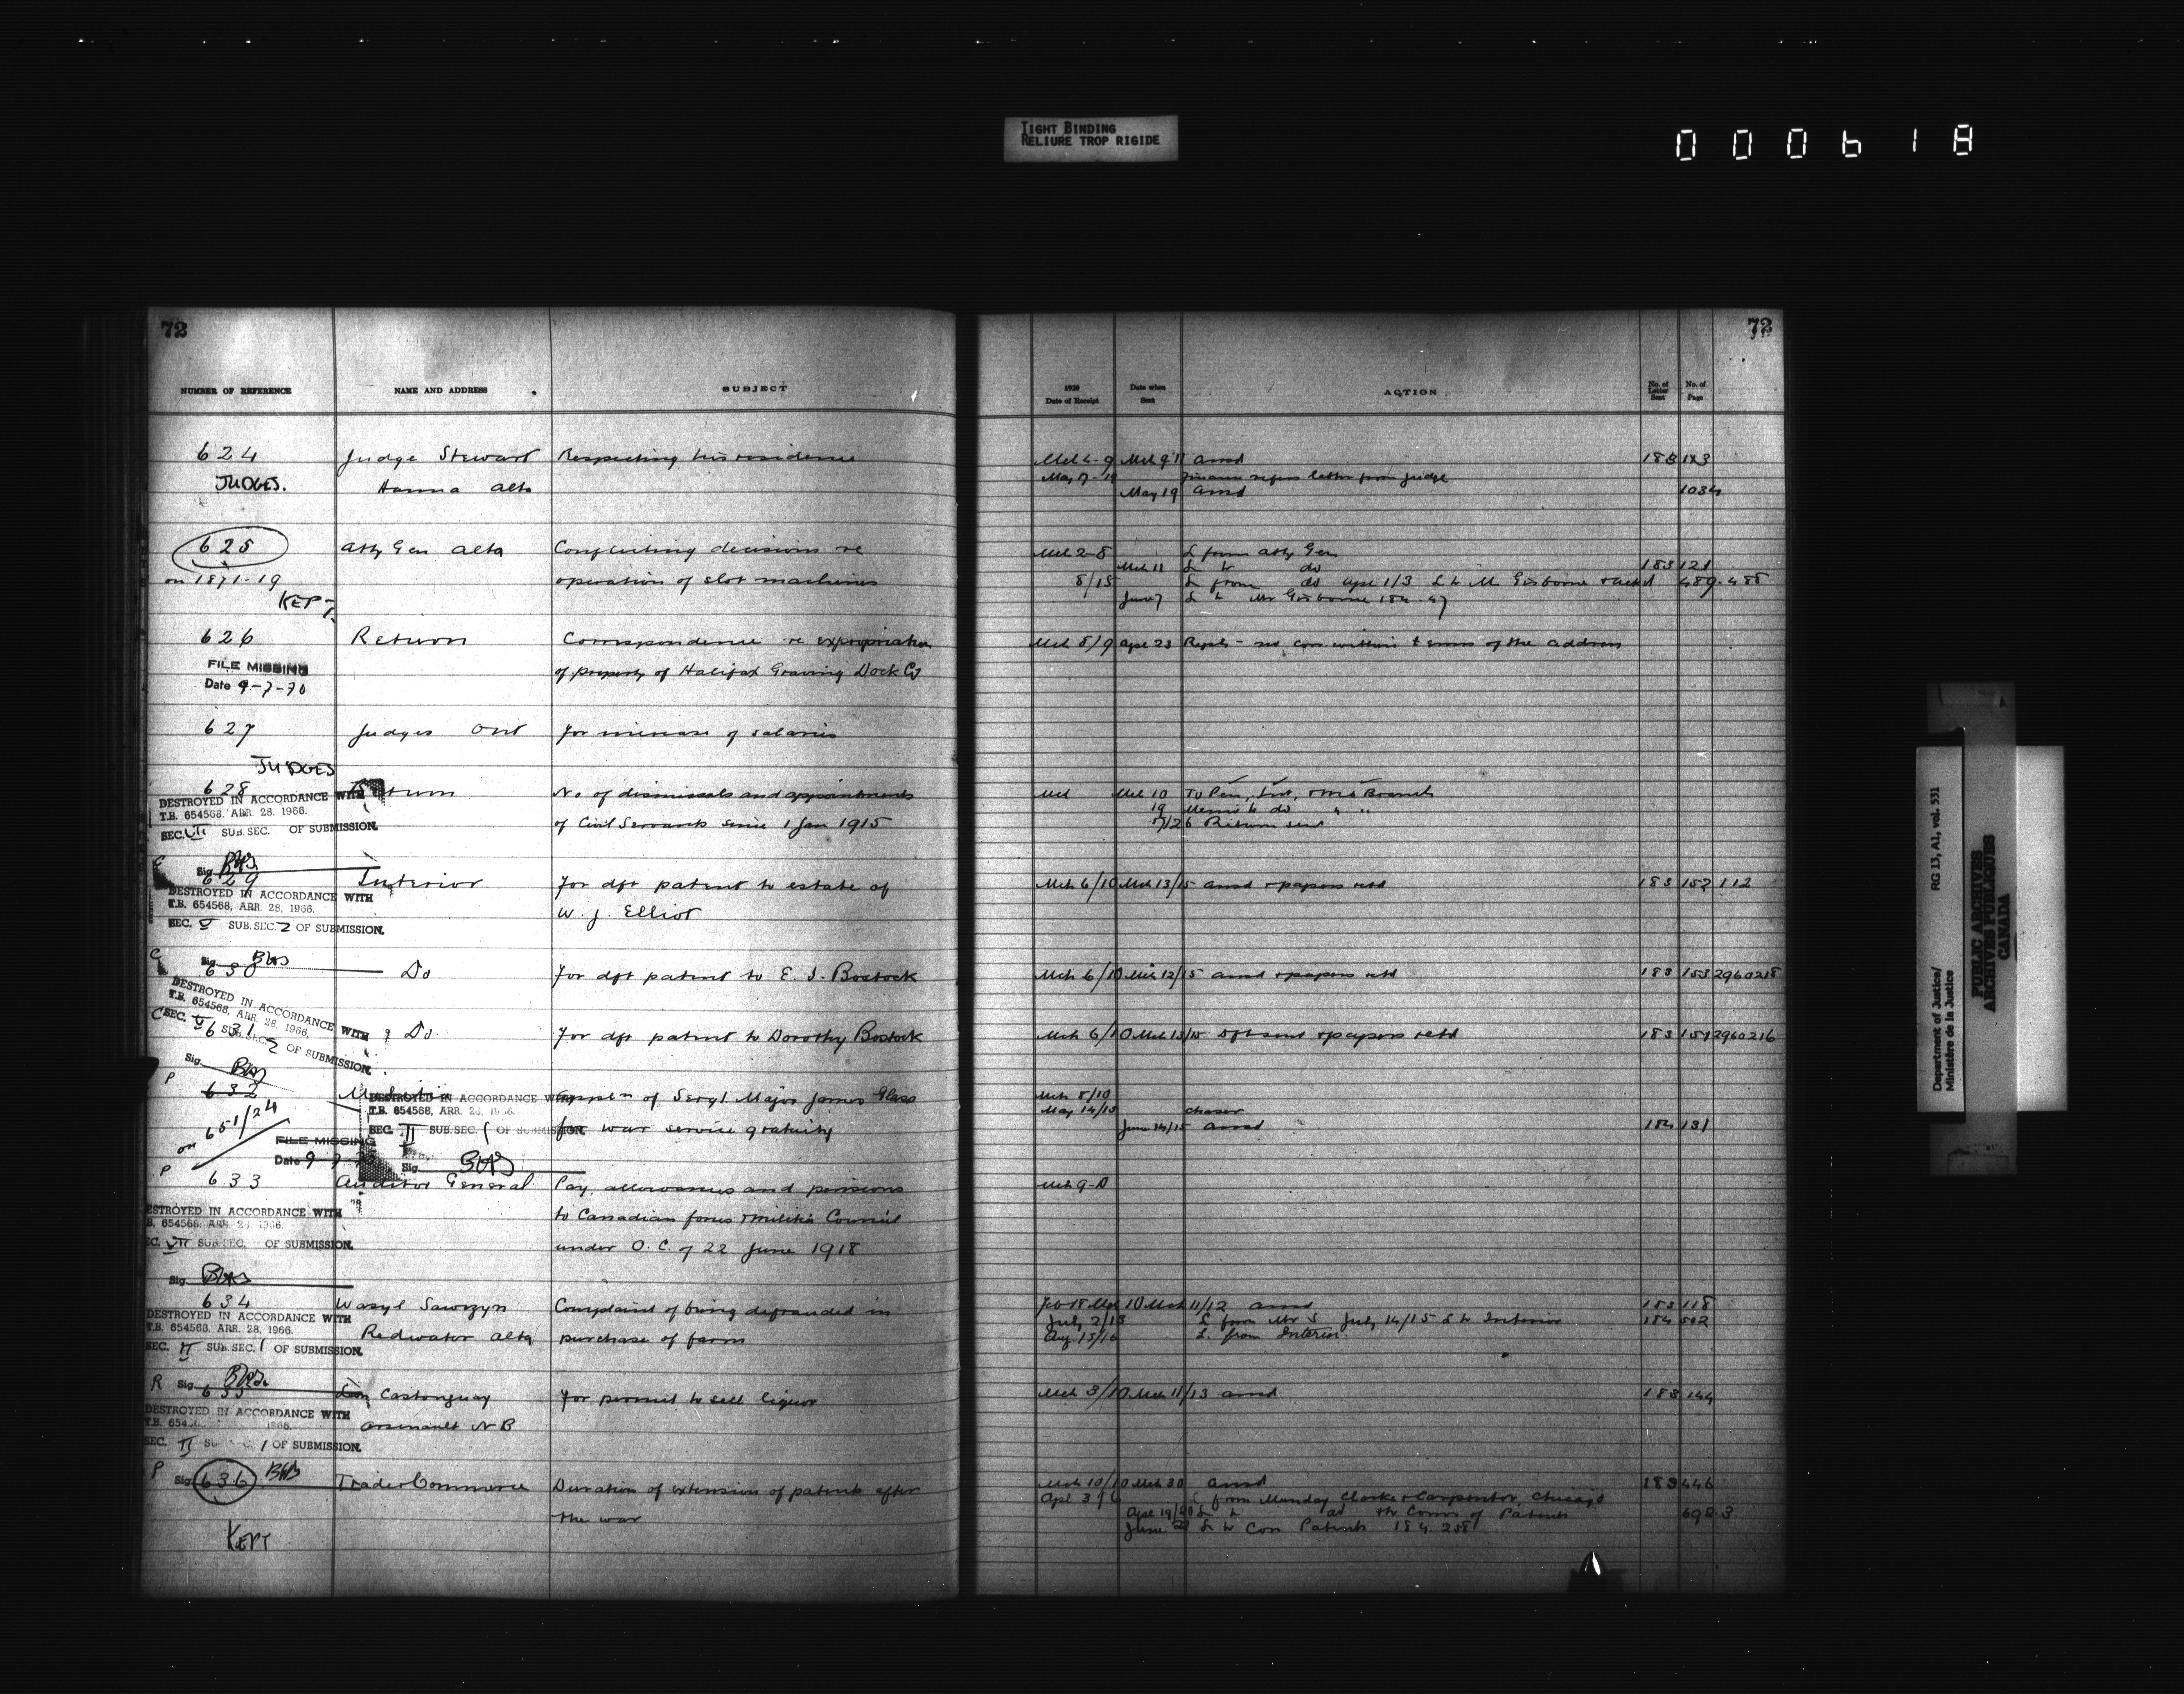 TIGHT BINDING
RELIURE TROP RIGIDE
000618
72
NUMBER OF REFERENCE NAME AND ADDRESS SUBJECT
624 Judge Stewart Respecting his residence
JUDGES. Hanna Alta
625 Atty Gen Alta Conflicting decisions re
on 1871-19 operation of slot machines
KEPT.
626 Return Correspondence re expropriation
FILE MISSING of property of Halifax Graving Dock Co
Date 9-7-70
627 Judges Ont For increase of salaries
JUDGES
628 Return No of dismissals and appointments
DESTROYED IN ACCORDANCE WITH
T.B. 654568, APR. 28, 1966.
of Civil Servants since 1 Jan 1915
SEC. VII SUB. SEC. OF SUBMISSION.
Sig.
629 Interior For dft patent to estate of
DESTROYED IN ACCORDANCE WITH
T.B. 654568, APR. 28, 1966.
W. J. Elliot
SEC. V SUB. SEC. 2 OF SUBMISSION.
Sig.
630 Do For dft patent to E. J. Bostock
DESTROYED IN ACCORDANCE WITH
T.B. 654568, APR. 28, 1966.
SEC. V SUB. SEC. 2 OF SUBMISSION.
631 Do For dft patent to Dorothy Bostock
Sig.
P
632 of Sergt. Major James Glass
DESTROYED IN ACCORDANCE WITH
T.B. 654568, APR. 28, 1966.
on 651/24
SEC. II SUB. SEC. 1 OF SUBMISSION.
for war service gratuity
FILE MISSING
Date 9
Sig.
P
633 Auditor General Pay, allowances and pensions
DESTROYED IN ACCORDANCE WITH
T.B. 654568, APR. 28, 1966.
to Canadian forces & Militia Council
SEC. VII SUB. SEC. OF SUBMISSION.
under O.C. of 22 June 1918
Sig.
634 Wasyl Sawrzyn Complaint of being defrauded in
DESTROYED IN ACCORDANCE WITH
T.B. 654568, APR. 28, 1966.
Redwater Alta purchase of farm
SEC. II SUB. SEC. 1 OF SUBMISSION.
R Sig.
635 Leon Castonguay For permit to sell liquor
DESTROYED IN ACCORDANCE WITH
Arsenault N B
SEC. II 1 OF SUBMISSION.
P Sig.
636 Trade & Commerce Duration of extension of patents after
the war
KEPT
72
1920
Date of Receipt Date when Sent ACTION No. of Letter Sent No. of Page
Mch 4-9 Mch 9/11 ansd 183 123
May 7-19 Finance refers letter from Judge
May 19 ansd 1034
Mch 2-8 L from Atty Gen
Mch 11 L to do 183 121
8/15 L from do Apl 1/3 L to Mr Gisborne 489-488
June 7 L to Mr Gisborne 184.47
Mch 8/9 Apl 23 Reply - no corr. within terms of the address
Mch Mch 10 To Pen, Ind, & Branch
19 Memo to do " "
7/26 Return sent
Mch 6/10 Mch 13/15 ansd & papers retd 183 152 112
Mch 6/10 Mch 12/15 ansd & papers retd 183 153 2960218
Mch 6/10 Mch 13/15 dft sent & papers retd 183 154 2960216
Mch 8/10
May 14/15 chaser
June 14/15 ansd 184 131
Mch 9-10
Feb 18 Mch 10 Mch 11/12 ansd 183 118
July 2/13 L from Mr S July 14/15 L to Interior 184 502
Aug 13/16 L. from Interior.
Mch 3/10 Mch 11/13 ansd 183 144
Mch 10/10 Mch 30 ansd 183 446
Apl 3/6 L from Munday Clarke & Carpenter, Chicago
Apl 19/20 L to do & to Comm of Patents 692-3
June 22 L to Com Patents 184 258
Department of Justice/
Ministère de la Justice
RG 13, A1, vol. 531
PUBLIC ARCHIVES
ARCHIVES PUBLIQUES
CANADA